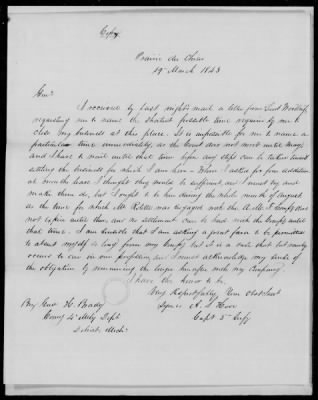 Copy
Prairie du Chien
19 March 1843
Gen^l
I received by last night's mail a letter from Lieut
requesting me to name the shortest possible time required by me to
close my business at this place. It is impossible for me to name a
particular time immediately, as the Court does not meet until May
and I have to wait until that time before any steps can be taken toward
settling the business for which I am here. When I asked for
at once the I thought they would be sufficient and I must try and
make them do, but I ought to be here during the whole month of August
as the time for which Mr was engaged with the A. M. F. Comp^y does
not expire until then, and no settlement can be had with the Comp^y until
that time. I am sensible that I am asking a great favor to be permitted
to absent myself so long from my Comp^y but it is a case that but rarely
occurs to one in our profession, and I must acknowledge my sense of
the obligation by remaining the longer hereafter with my Company.
I have the honor to be
Very Respectfully Your Obt Servt
Signed A. S. Hooe
Capt 5 Infy
Brg Genl H. Brady
Comg 4 Mily Dept
Detroit Mich